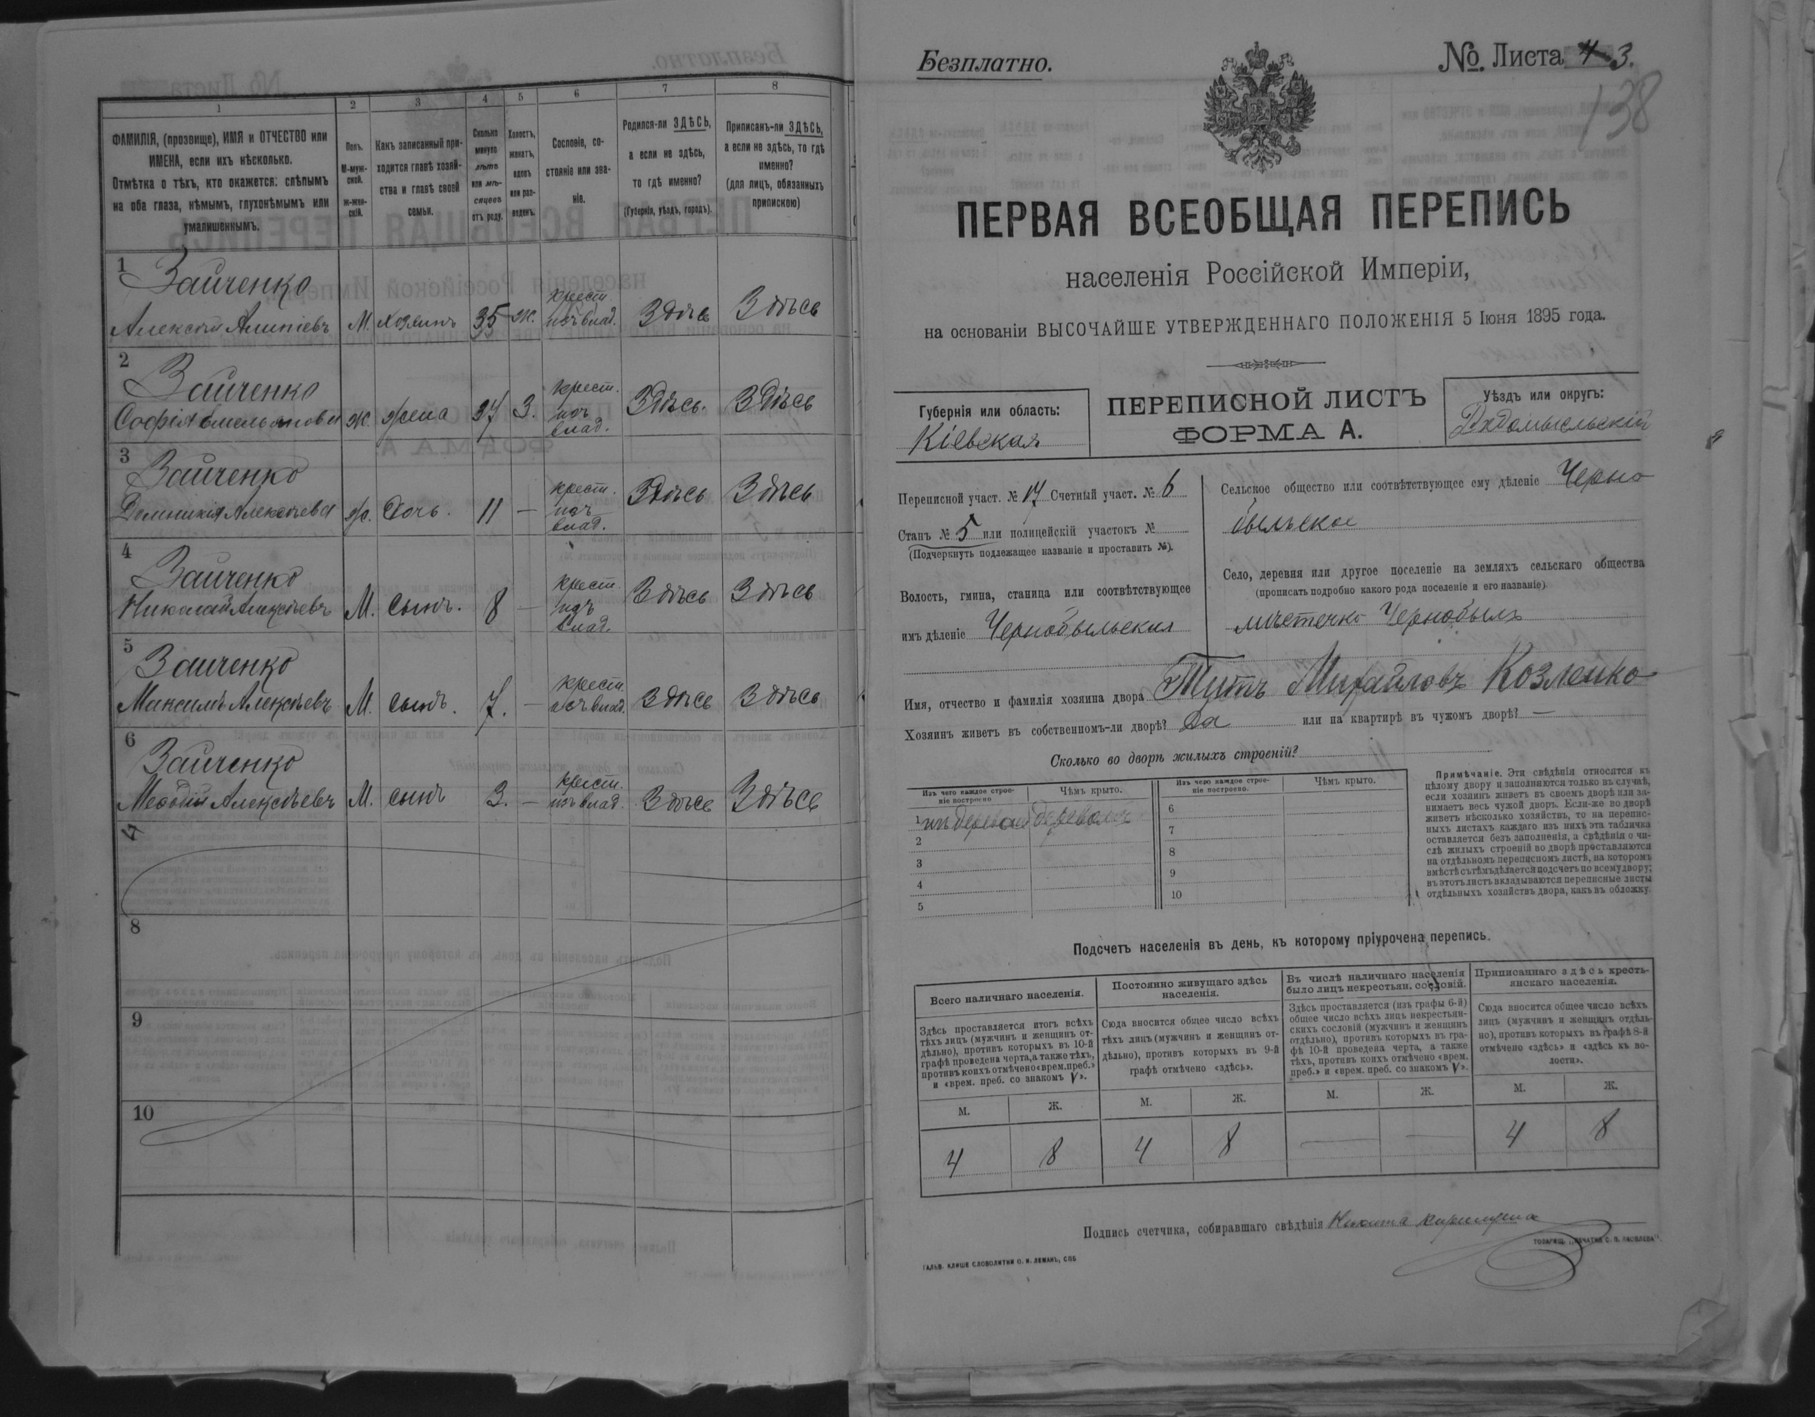 1
2
3
4
5
6
7
8
ФАМИЛІЯ, (прозвище), ИМЯ и ОТЧЕСТВО или
ИМЕНА, если ихъ нѣсколько.
Отмѣтка о тѣхъ, кто окажется: слѣпымъ
на оба глаза, нѣмымъ, глухонѣмымъ или
умалишеннымъ.
Полъ.
М-муж-
ской.
Ж-жен-
скій.
Какъ записанный при-
ходится главѣ хозяй-
ства и главѣ своей
семьи.
Сколько
минуло
лѣтъ
или мѣ-
сяцевъ
отъ роду.
Холостъ,
женатъ,
вдовъ
или раз-
веденъ.
Сословіе, со-
стояніе или зва-
ніе.
Родился-ли ЗДѢСЬ,
а если не здѣсь,
то гдѣ именно?
(Губернія, уѣздъ, городъ).
Приписанъ-ли ЗДѢСЬ,
а если не здѣсь, то гдѣ
именно?
(для лицъ, обязанныхъ
припискою)
1
Зайченко
Алексѣй Алипіевъ М. хозяинъ 35 ж. крест. изъ влад. Здѣсь Здѣсь
2
Зайченко
Софія Емельянова ж. жена 37 З. крест. изъ влад. Здѣсь. Здѣсь
3
Зайченко
Домникія Алексѣева ж. Дочь. 11 — крест. изъ влад. Здѣсь Здѣсь
4
Зайченко
Николай Алексѣевъ М. сынъ. 8 — крест. изъ влад. Здѣсь Здѣсь
5
Зайченко
Максимъ Алексѣевъ М. сынъ. 7. — крест. изъ влад. Здѣсь Здѣсь
6
Зайченко
Меѳодій Алексѣевъ М. сынъ 3. — крест. изъ влад. Здѣсь Здѣсь
7
8
9
10
Безплатно.
№. Листа 4 3.
138
ПЕРВАЯ ВСЕОБЩАЯ ПЕРЕПИСЬ
населенія Россійской Имперіи,
на основаніи ВЫСОЧАЙШЕ УТВЕРЖДЕННАГО ПОЛОЖЕНІЯ 5 Іюня 1895 года.
Губернія или область:
Кіевская
ПЕРЕПИСНОЙ ЛИСТЪ
ФОРМА А.
Уѣздъ или округъ:
Радомысльскій
Переписной участ. № 17 Счетный участ. № 6
Станъ № 5 или полицейскій участокъ №
(Подчеркнуть подлежащее названіе и проставить №).
Волость, гмина, станица или соотвѣтствующее
имъ дѣленіе Чернобыльская
Сельское общество или соотвѣтствующее ему дѣленіе Черно
быльское
Село, деревня или другое поселеніе на земляхъ сельскаго общества
(прописать подробно какого рода поселеніе и его названіе)
мѣстечко Чернобыль
Имя, отчество и фамилія хозяина двора Титъ Михайловъ Козленко
Хозяинъ живетъ въ собственномъ-ли дворѣ? Да или на квартирѣ въ чужомъ дворѣ? —
Сколько во дворѣ жилыхъ строеній?
Изъ чего каждое строе-
ніе построено
Чѣмъ крыто.
Изъ чего каждое строе-
ніе построено.
Чѣмъ крыто.
1 изъ дерева деревомъ
2
3
4
5
6
7
8
9
10
Примѣчаніе. Эти свѣдѣнія относятся къ
цѣлому двору и заполняются только въ случаѣ,
если хозяинъ живетъ въ своемъ дворѣ или за-
нимаетъ весь чужой дворъ. Если-же во дворѣ
живетъ нѣсколько хозяйствъ, то на перепис-
ныхъ листахъ каждаго изъ нихъ эта табличка
оставляется безъ заполненія, а свѣдѣнія о чи-
слѣ жилыхъ строеній во дворѣ проставляются
на отдѣльномъ переписномъ листѣ, на которомъ
вмѣстѣ съ тѣмъ дѣлается подсчетъ по всему двору;
въ этотъ листъ вкладываются переписные листы
отдѣльныхъ хозяйствъ двора, какъ въ обложку.
Подсчетъ населенія въ день, къ которому пріурочена перепись.
Всего наличнаго населенія.
Здѣсь проставляется итогъ всѣхъ
тѣхъ лицъ (мужчинъ и женщинъ от-
дѣльно), противъ которыхъ въ 10-й
графѣ проведена черта, а также тѣхъ,
противъ коихъ отмѣчено «врем. преб.»
и «врем. преб. со знакомъ V».
Постоянно живущаго здѣсь
населенія.
Сюда вносится общее число всѣхъ
тѣхъ лицъ (мужчинъ и женщинъ от-
дѣльно), противъ которыхъ въ 9-й
графѣ отмѣчено «здѣсь».
Въ числѣ наличнаго населенія
было лицъ некрестьян. сословій.
Здѣсь проставляется (изъ графы 6-й)
общее число всѣхъ лицъ некрестьян-
скихъ сословій (мужчинъ и женщинъ
отдѣльно), противъ которыхъ въ гра-
фѣ 10-й проведена черта, а также
тѣхъ, противъ коихъ отмѣчено «врем.
преб.» и «врем. преб. со знакомъ V».
Приписаннаго здѣсь кресть-
янскаго населенія.
Сюда вносится общее число всѣхъ
лицъ (мужчинъ и женщинъ отдѣль-
но), противъ которыхъ въ графѣ 8-й
отмѣчено «здѣсь» и «здѣсь въ во-
лости».
М. Ж. М. Ж. М. Ж. М. Ж.
4 8 4 8 — — 4 8
Подпись счетчика, собиравшаго свѣдѣнія Никита
ГАЛЬВ. КЛИШЕ СЛОВОЛИТНИ О. И. ЛЕМАНЪ, СПБ.
ТОВАРИЩ. „ПЕЧАТНЯ С. П. ЯКОВЛЕВА“.